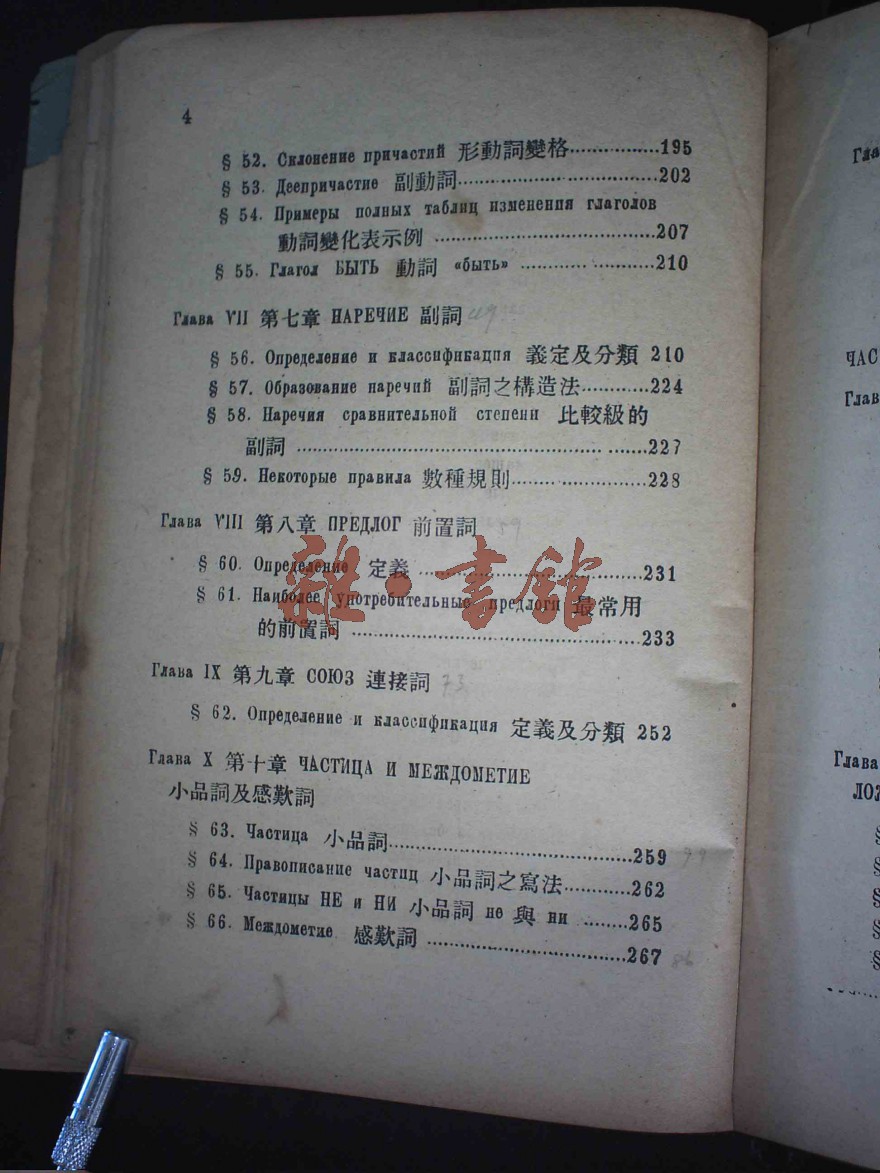 4
§ 52. Склонение причастий 形動詞變格................195
§ 53. Деепричастие 副動詞................................202
§ 54. Примеры полных таблиц изменения глаголов
動詞變化表示例 ....................................207
§ 55. Глагол БЫТЬ 動詞 «быть» ........................210
Глава VII 第七章 НАРЕЧИЕ 副詞 49
§ 56. Определение и классификация 義定及分類 210
§ 57. Образование наречий 副詞之構造法............224
§ 58. Наречия сравнительной степени 比較級的
副詞 ............................................................227
§ 59. Некоторые правила 數種規則........................228
Глава VIII 第八章 ПРЕДЛОГ 前置詞 59
§ 60. Определение 定義 ....................................231
§ 61. Наиболее употребительные предлоги 最常用
的前置詞 ................................................233
雜·書館
Глава IX 第九章 СОЮЗ 連接詞 73
§ 62. Определение и классификация 定義及分類 252
Глава X 第十章 ЧАСТИЦА И МЕЖДОМЕТИЕ
小品詞及感歎詞
§ 63. Частица 小品詞............................................259 79
§ 64. Правописание частиц 小品詞之寫法............262
§ 65. Частицы НЕ и НИ 小品詞 не 與 ни ........265
§ 66. Междометие 感歎詞 ....................................267 86
Гла
ЧАС
Глав
Глава
ЛОЖ
§
§
§
§
§